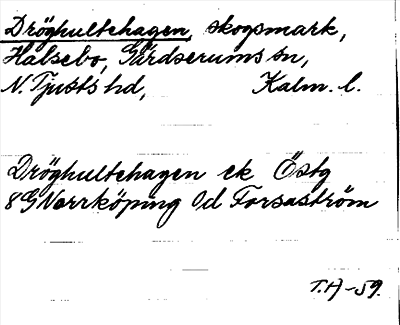 Dröghultehagen, skogsmark,
Halsebo, Gärdserums sn,
N. Tjusts hd, Kalm. l.
Dröghultehagen ek Östg
8G Norrköping 0d Forsaström
T.H -59.